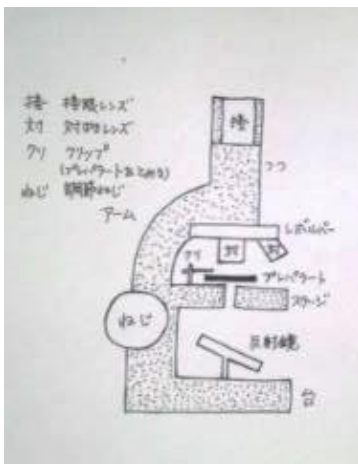 接 接眼レンズ
対 対物レンズ
クリ クリップ
(プレパラートをとめる)
ねじ 調節ねじ
アーム
接
つつ
レボルバー
対
対
クリ
プレパラート
ステージ
ねじ
反射鏡
台